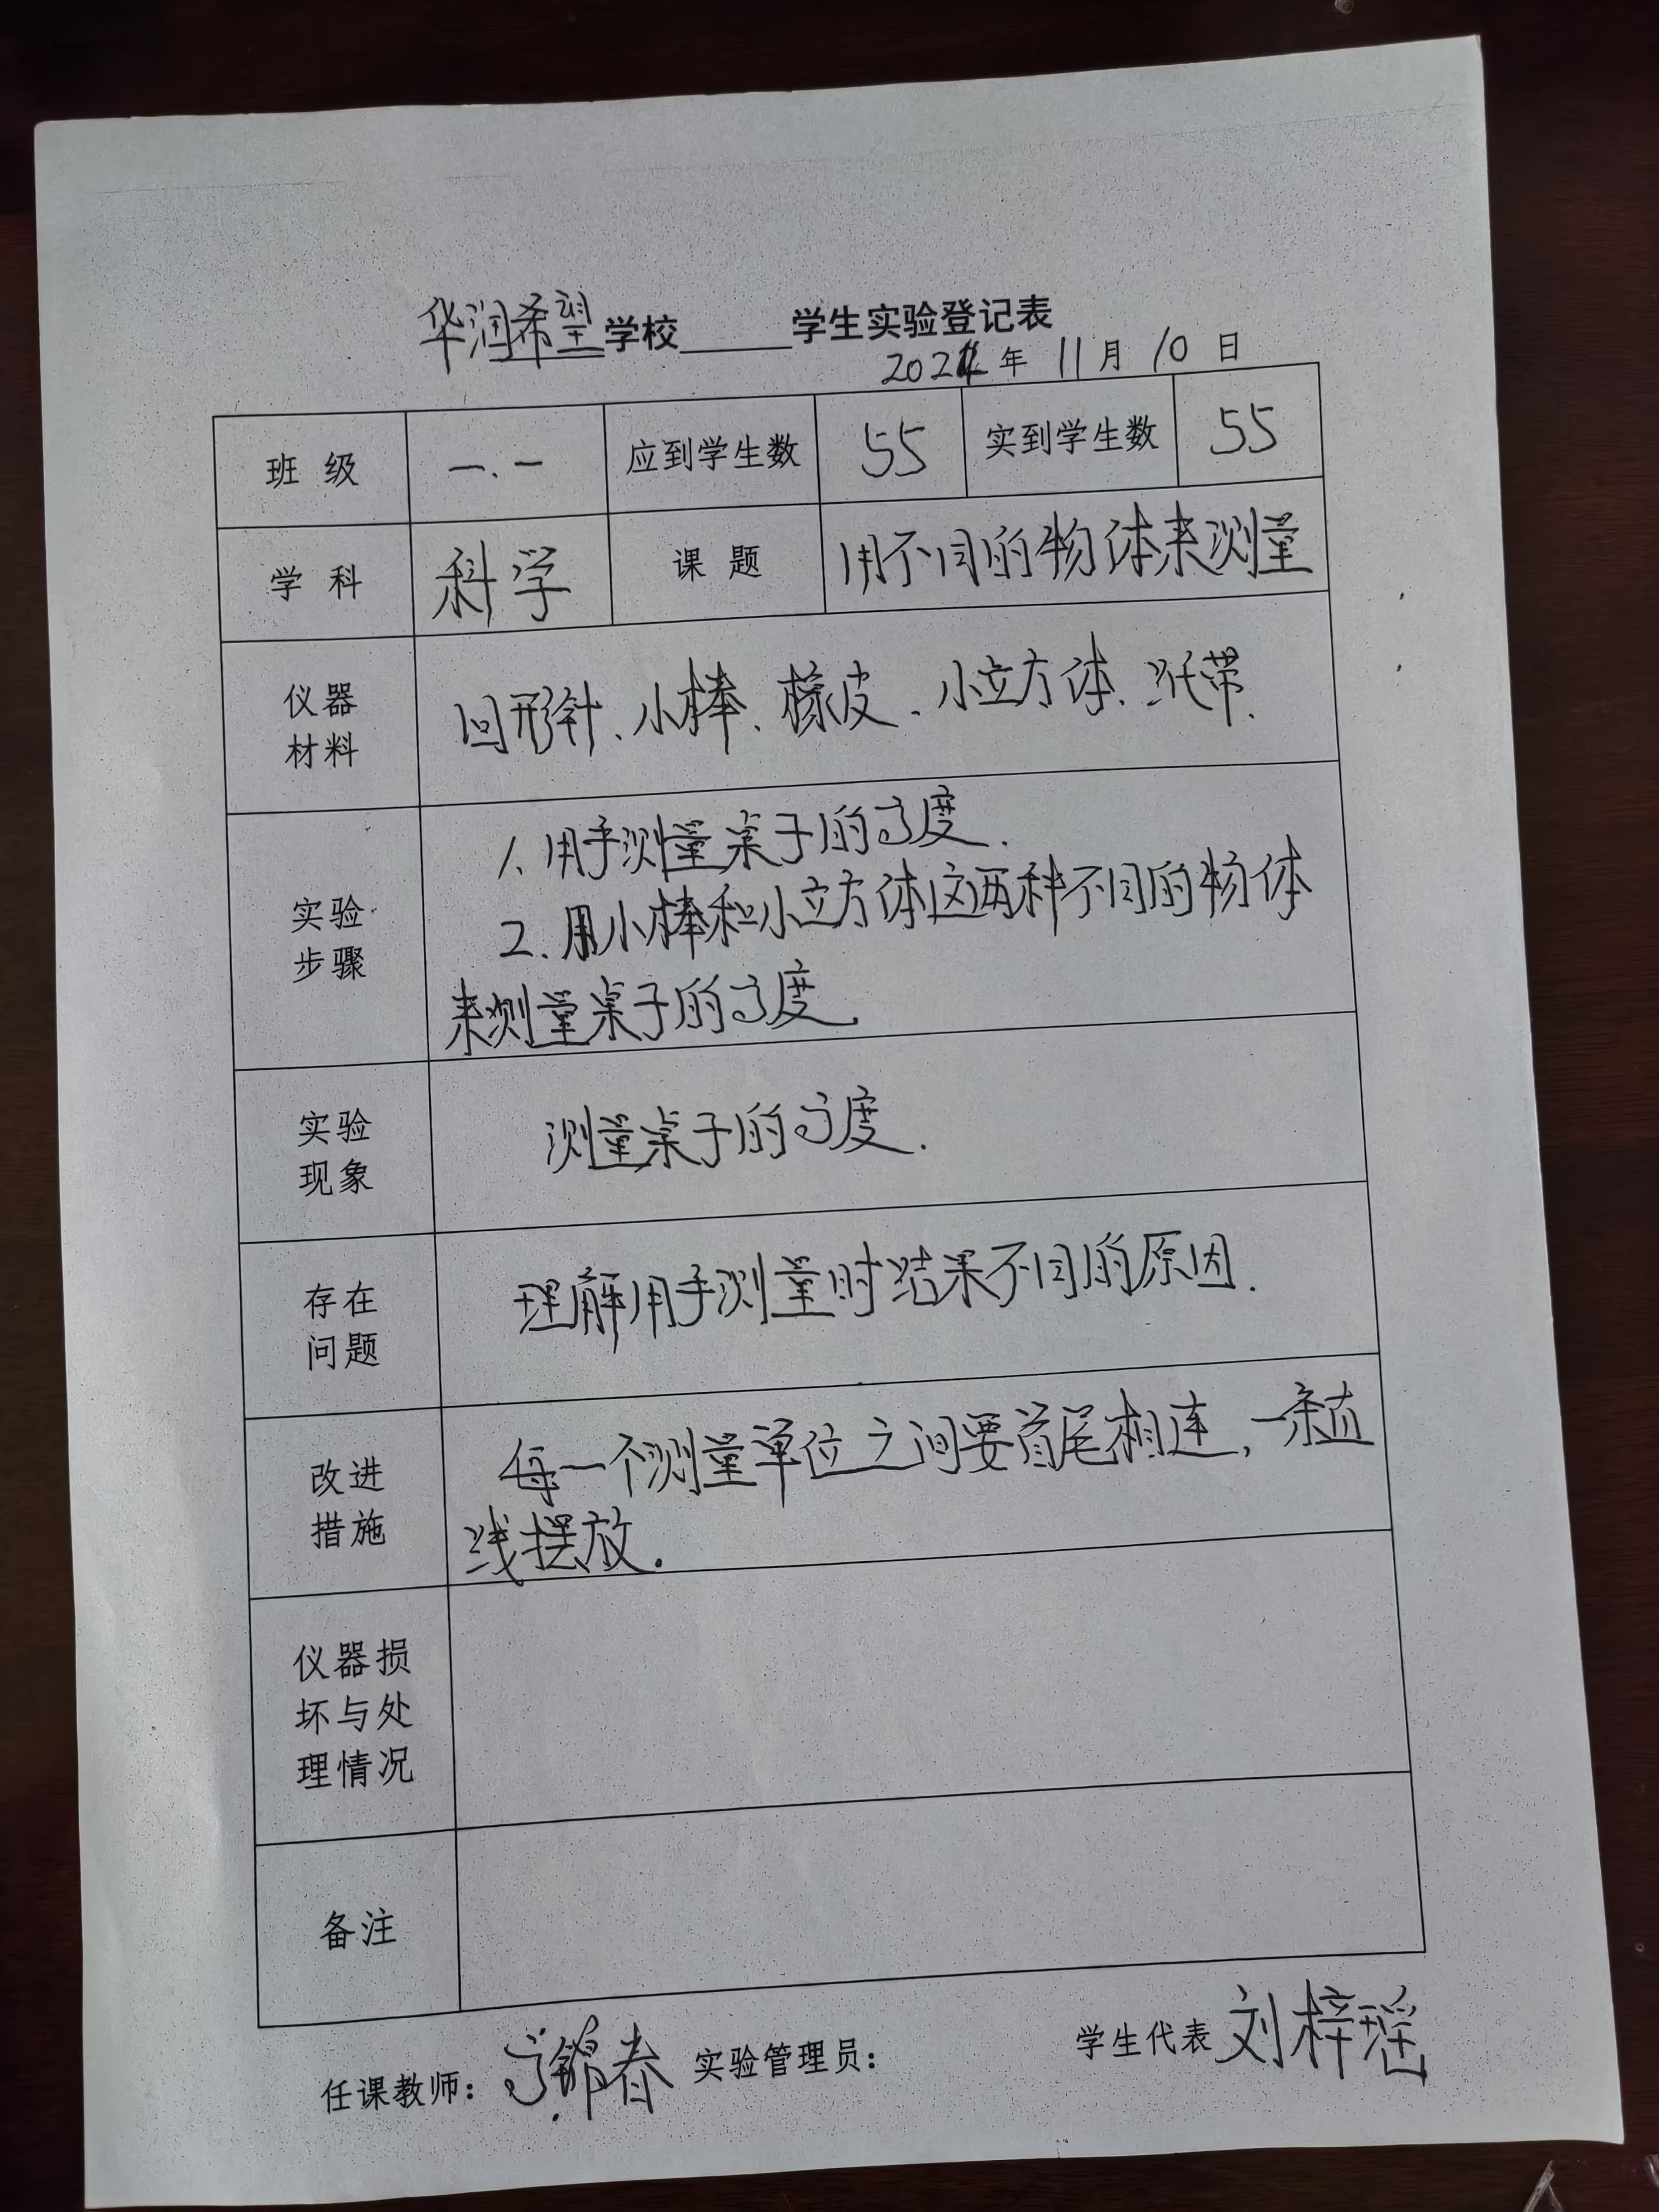 华润希望学校______学生实验登记表
2024年 11月 10日
班 级 一.一 应到学生数 55 实到学生数 55
学 科 科学 课 题 用不同的物体来测量
仪器
材料
回形针、小棒、橡皮、小立方体、纸带.
实验
步骤
1. 用手测量桌子的高度.
2. 用小棒和小立方体这两种不同的物体
来测量桌子的高度.
实验
现象
测量桌子的高度.
存在
问题
理解用手测量时结果不同的原因.
改进
措施
每一个测量单位之间要首尾相连,一条直
线摆放.
仪器损
坏与处
理情况
备注
任课教师: 高锦春 实验管理员: 学生代表 刘梓瑶